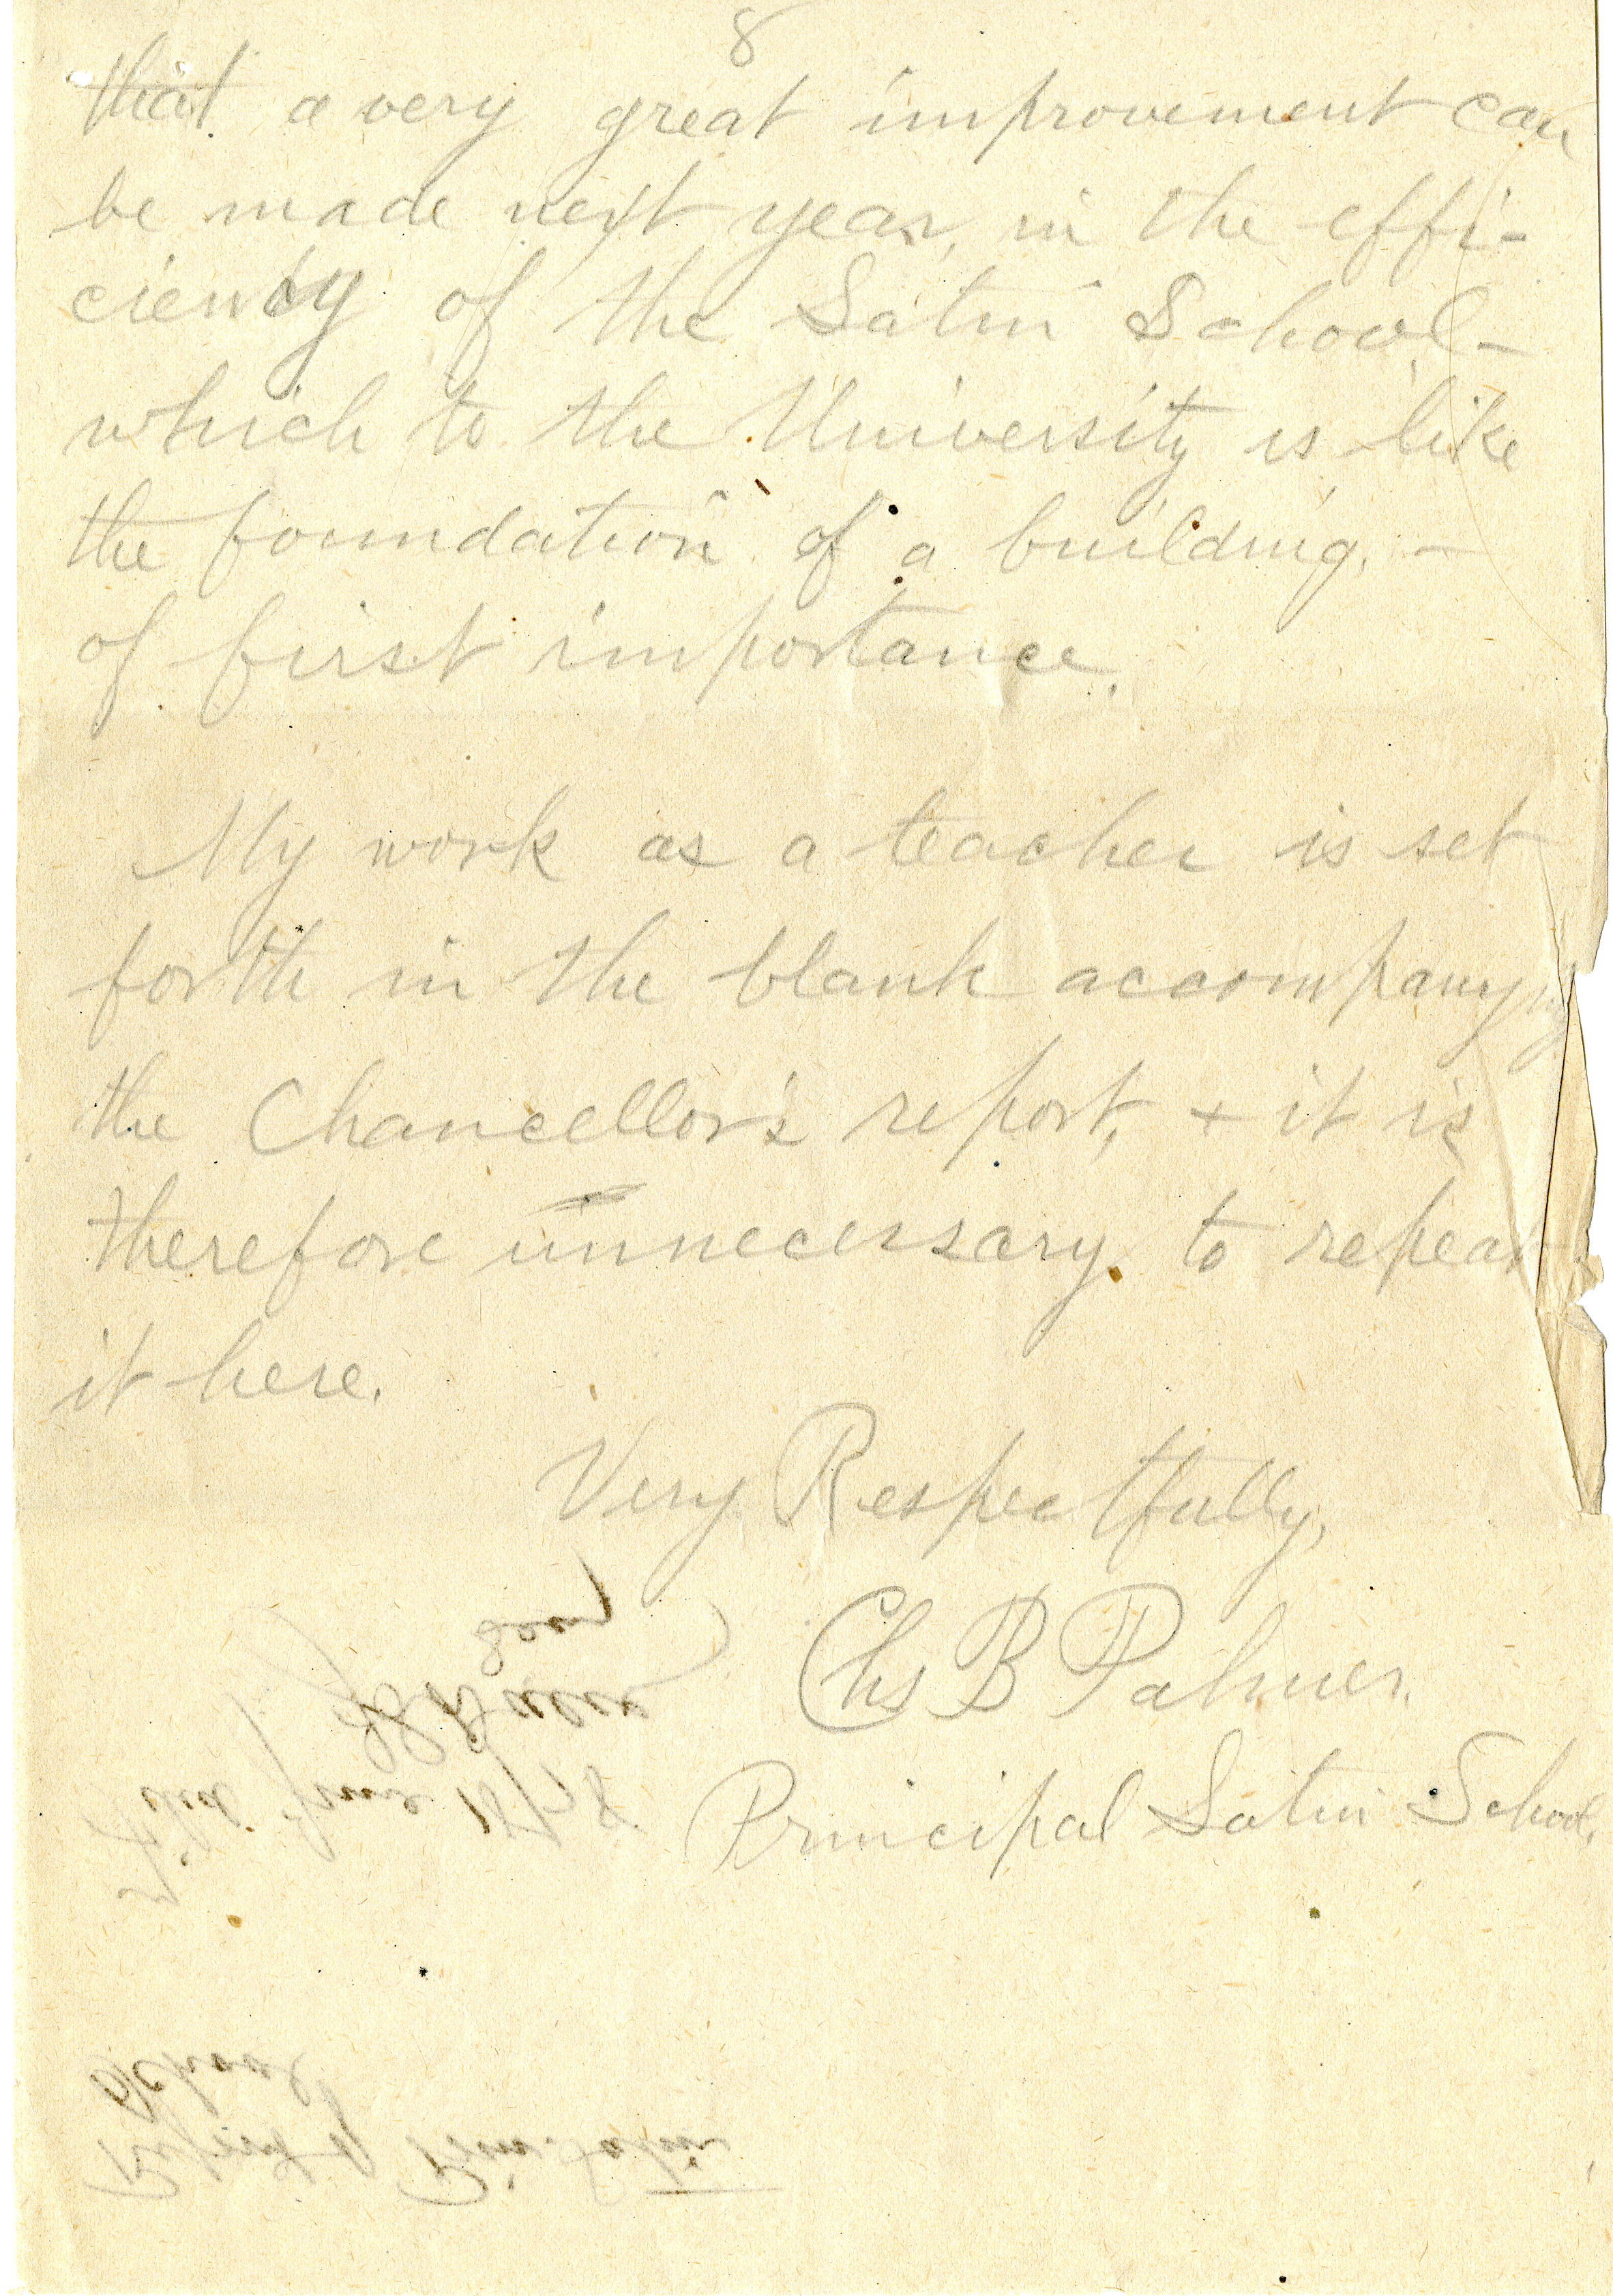 8
that a very great improvement can
be made next year, in the effi-
ciency of the Latin School -
which to the University is like
the foundation of a building, -
of first importance.
My work as a teacher is set
forth in the blank accompanying
the Chancellor's report, & it is
therefore unnecessary to repeat
it here.
Very Respectfully,
Chs B Palmer.
Principal Latin School.
Report of Prin. Latin
School
Filed June 18/78
Secy